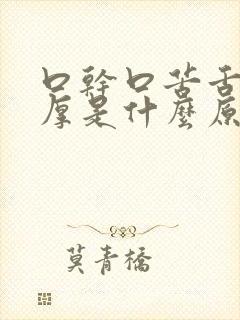 口幹口苦舌
厚是什麼原
莫青橋